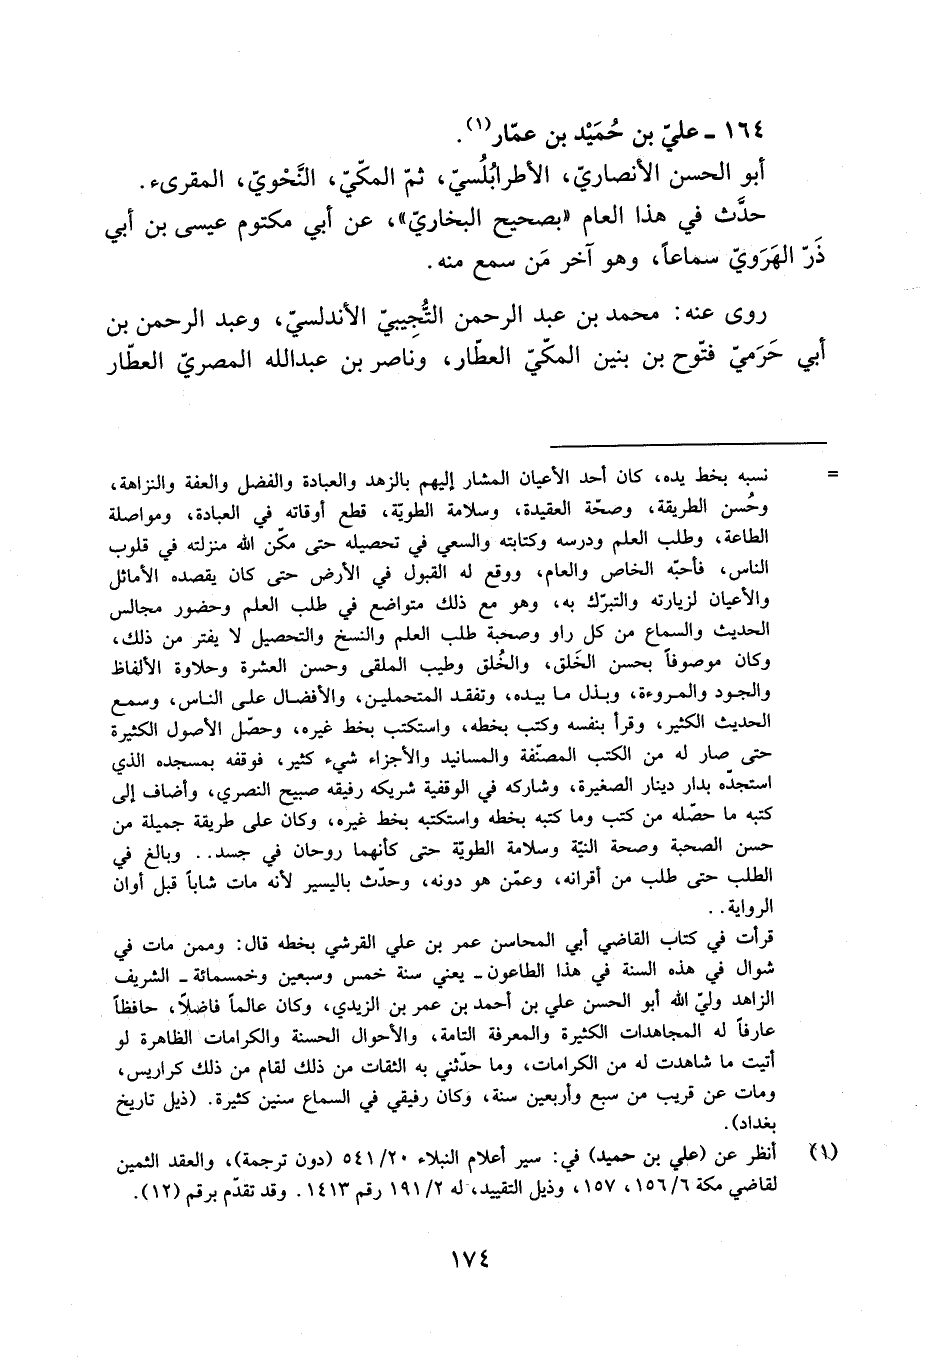 ١٦٤ ـ عليّ بن حُمَيْد بن عمّار(١).
أبو الحسن الأنصاريّ، الأطرابُلُسيّ، ثمّ المكّيّ، النَّحْويّ، المقرىء.
حدَّث في هذا العام «بصحيح البخاريّ»، عن أبي مكتوم عيسى بن أبي
ذَرّ الهَرَويّ سماعاً، وهو آخر مَن سمع منه.
روى عنه: محمد بن عبد الرحمن التُّجِيبيّ الأندلسيّ، وعبد الرحمن بن
أبي حَرَميّ فتّوح بن بنين المكّيّ العطّار، وناصر بن عبدالله المصريّ العطّار
= نسبه بخط يده، كان أحد الأعيان المشار إليهم بالزهد والعبادة والفضل والعفة والنزاهة،
وحُسن الطريقة، وصحّة العقيدة، وسلامة الطويّة، قطع أوقاته في العبادة، ومواصلة
الطاعة، وطلب العلم ودرسه وكتابته والسعي في تحصيله حتى مكّن الله منزلته في قلوب
الناس، فأحبّه الخاص والعام، ووقع له القبول في الأرض حتى كان يقصده الأماثل
والأعيان لزيارته والتبرّك به، وهو مع ذلك متواضع في طلب العلم وحضور مجالس
الحديث والسماع من كل راو وصحبة طلب العلم والنسخ والتحصيل لا يفتر من ذلك،
وكان موصوفاً بحسن الخَلق، والخُلق وطيب الملقى وحسن العشرة وحلاوة الألفاظ
والجود والمروءة، وبذل ما بيده، وتفقد المتحملين، والأفضال على الناس، وسمع
الحديث الكثير، وقرأ بنفسه وكتب بخطه، واستكتب بخط غيره، وحصّل الأصول الكثيرة
حتى صار له من الكتب المصنّفة والمسانيد والأجزاء شيء كثير، فوقفه بمسجده الذي
استجدّه بدار دينار الصغيرة، وشاركه في الوقفية شريكه رفيقه صبيح النصري، وأضاف إلى
كتبه ما حصّله من كتب وما كتبه بخطه واستكتبه بخط غيره، وكان على طريقة جميلة من
حسن الصحبة وصحة النيّة وسلامة الطويّة حتى كأنهما روحان في جسد.. وبالغ في
الطلب حتى طلب من أقرانه، وعمّن هو دونه، وحدّث باليسير لأنه مات شاباً قبل أوان
الرواية..
قرأت في كتاب القاضي أبي المحاسن عمر بن علي القرشي بخطه قال: وممن مات في
شوال في هذه السنة في هذا الطاعون ـ يعني سنة خمس وسبعين وخمسمائة ـ الشريف
الزاهد وليّ الله أبو الحسن علي بن أحمد بن عمر بن الزيدي، وكان عالماً فاضلاً، حافظاً
عارفاً له المجاهدات الكثيرة والمعرفة التامة، والأحوال الحسنة والكرامات الظاهرة لو
أتيت ما شاهدت له من الكرامات، وما حدّثني به الثقات من ذلك لقام من ذلك كراريس،
ومات عن قريب من سبع وأربعين سنة، وكان رفيقي في السماع سنين كثيرة. (ذيل تاريخ
بغداد).
(١) أنظر عن (علي بن حميد) في: سير أعلام النبلاء ٥٤١/٢٠ (دون ترجمة)، والعقد الثمين
لقاضي مكة ١٥٦/٦، ١٥٧، وذيل التقييد، له ١٩١/٢ رقم ١٤١٣. وقد تقدّم برقم (١٢).
١٧٤